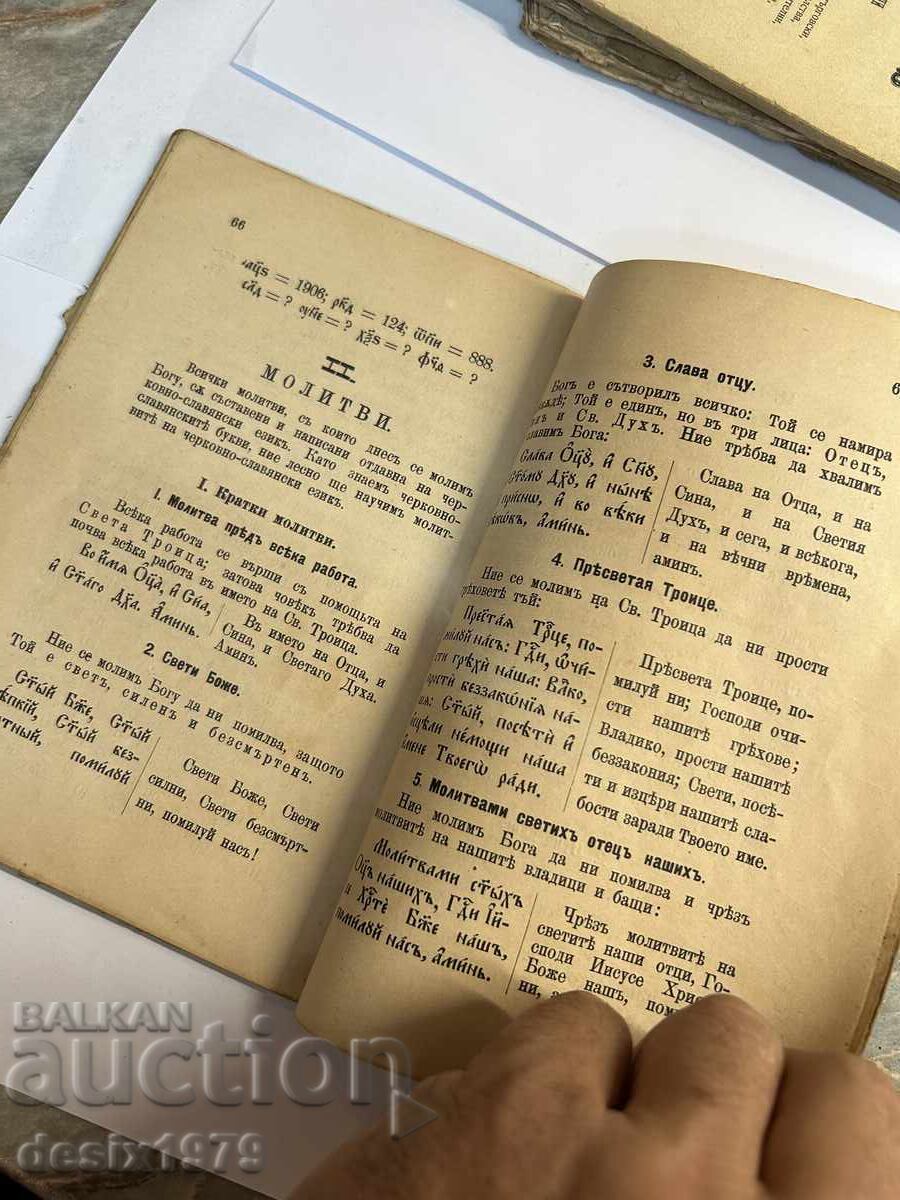 66
= 1906; рк҃д = 124; ѿпи = 888.
= ? = ? = ? = ?
II.
МОЛИТВИ.
Всички молитви, съ които днесъ се молимъ
Богу, сѫ съставени и написани отдавна на чер-
ковно-славянски езикъ. Като знаемъ черковно-
славянските букви, ние лесно ще научимъ молит-
витѣ на черковно-славянски езикъ.
I. Кратки молитви.
1. Молитва прѣдъ всѣка работа.
Всѣка работа се върши съ помощьта на
Света Троица; затова човѣкъ трѣбва да
почва всѣка работа въ името на Св. Троица.
Во и҆мѧ Ѻ҆ц҃а, и҆ Сн҃а,
и҆ Ст҃аго Дх҃а. А҆минь.
Въ името на Отца, и
Сина, и Светаго Духа.
Аминъ.
2. Свети Боже.
Ние се молимъ Богу да ни помилва, защото
Той е светъ, силенъ и безсмъртенъ.
Ст҃ый Бж҃е, Ст҃ый
ѣпкїй, Ст҃ый без-
ртный, помилꙋй
Свети Боже, Свети
силни, Свети безсмърт-
ни, помилуй насъ!
3. Слава отцу.
6
Богъ е сътворилъ всичко: Той се намира
ждѣ; Той е единъ, но въ три лица: Отецъ,
нъ и Св. Духъ. Ние трѣбва да хвалимъ
лавимъ Бога:
Слава Ѻ҆ц҃ꙋ, и҆ Сн҃ꙋ,
Ст҃омꙋ Дх҃ꙋ, и҆ нынѣ
приснѡ, и҆ во вѣки
вѣкѡвъ, а҆минь.
Слава на Отца, и на
Сина, и на Светия
Духъ, и сега, и всѣкога,
и на вѣчни врѣмена,
аминъ.
4. Прѣсветая Троице.
Ние се молимъ на Св. Троица да ни прости
грѣховетѣ тъй:
Прест҃аѧ Трⷪ҇це, по-
милꙋй насъ: Гдⷭ҇и, ѡ҆чи-
сти грѣхи наша: Влⷣко,
прости беззакѡнїѧ на-
ша: Ст҃ый, посѣти и҆
исцѣли немощи наша
имене Твоегѡ ради.
Прѣсвета Троице, по-
милуй ни; Господи очи-
сти нашитѣ грѣхове;
Владико, прости нашитѣ
беззакония; Свети, посѣ-
ти и изцѣри нашитѣ сла-
бости заради Твоето име.
5. Молитвами светихъ отецъ нашихъ.
Ние молимъ Бога да ни помилва и чрѣзъ
молитвитѣ на нашитѣ владици и бащи:
Молитвами ст҃ыхъ
Ѻ҆ц҃ъ нашихъ, Гдⷭ҇и І҆и-
и Хрⷭ҇те Бж҃е нашъ,
помилꙋй насъ, а҆минь.
Чрѣзъ молитвитѣ на
светитѣ наши отци, Го-
споди Иисусе Христе
Боже нашъ, поми
ни, а
BALKAN
auction
desix1979